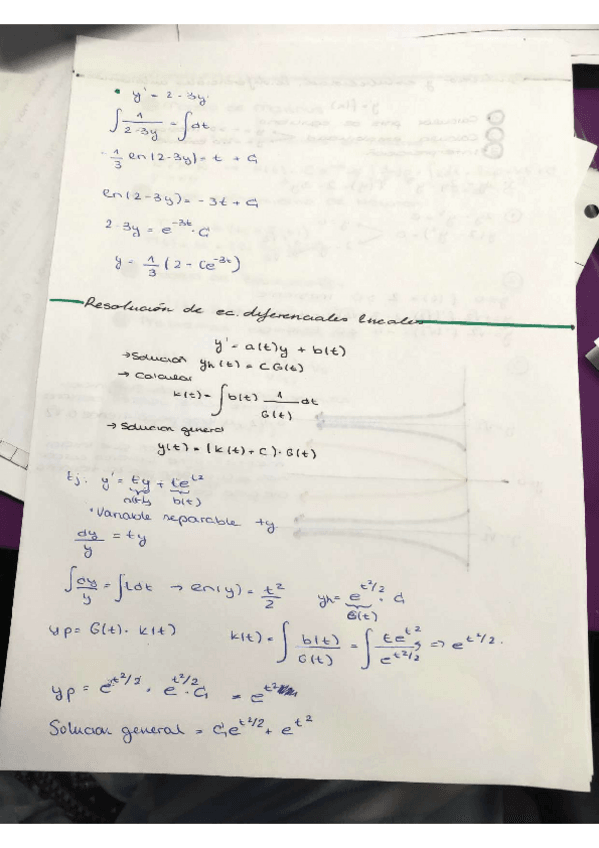 • y' = 2 - 3y
∫ 1/(2-3y) = ∫dt
-1/3 en(2-3y) = t + C₁
en(2-3y) = -3t + C₁
2-3y = e^(-3t) · C₁
y = 1/3 (2 - Ce^(-3t))
Resolución de ec. diferenciales lineales
y' = a(t)y + b(t)
→ Solución yh(t) = C G(t)
→ Calcular
k(t) = ∫ b(t) 1/G(t) dt
→ Solucion general
y(t) = (k(t) + C) · G(t)
Ej: y' = ty + te^(t²)
a(t) b(t)
• Variable separable ty
dy/y = ty
∫ dy/y = ∫ t dt → en(y) = t²/2 yh = e^(t²/2) · C₁
G(t)
yp = G(t) · k(t) k(t) = ∫ b(t)/G(t) = ∫ te^(t²)/e^(t²/2) => e^(t²/2).
yp = e^(t²/2) · e^(t²/2) · C₁ = e^(t²)
Solucion general = C₁e^(t²/2) + e^(t²)